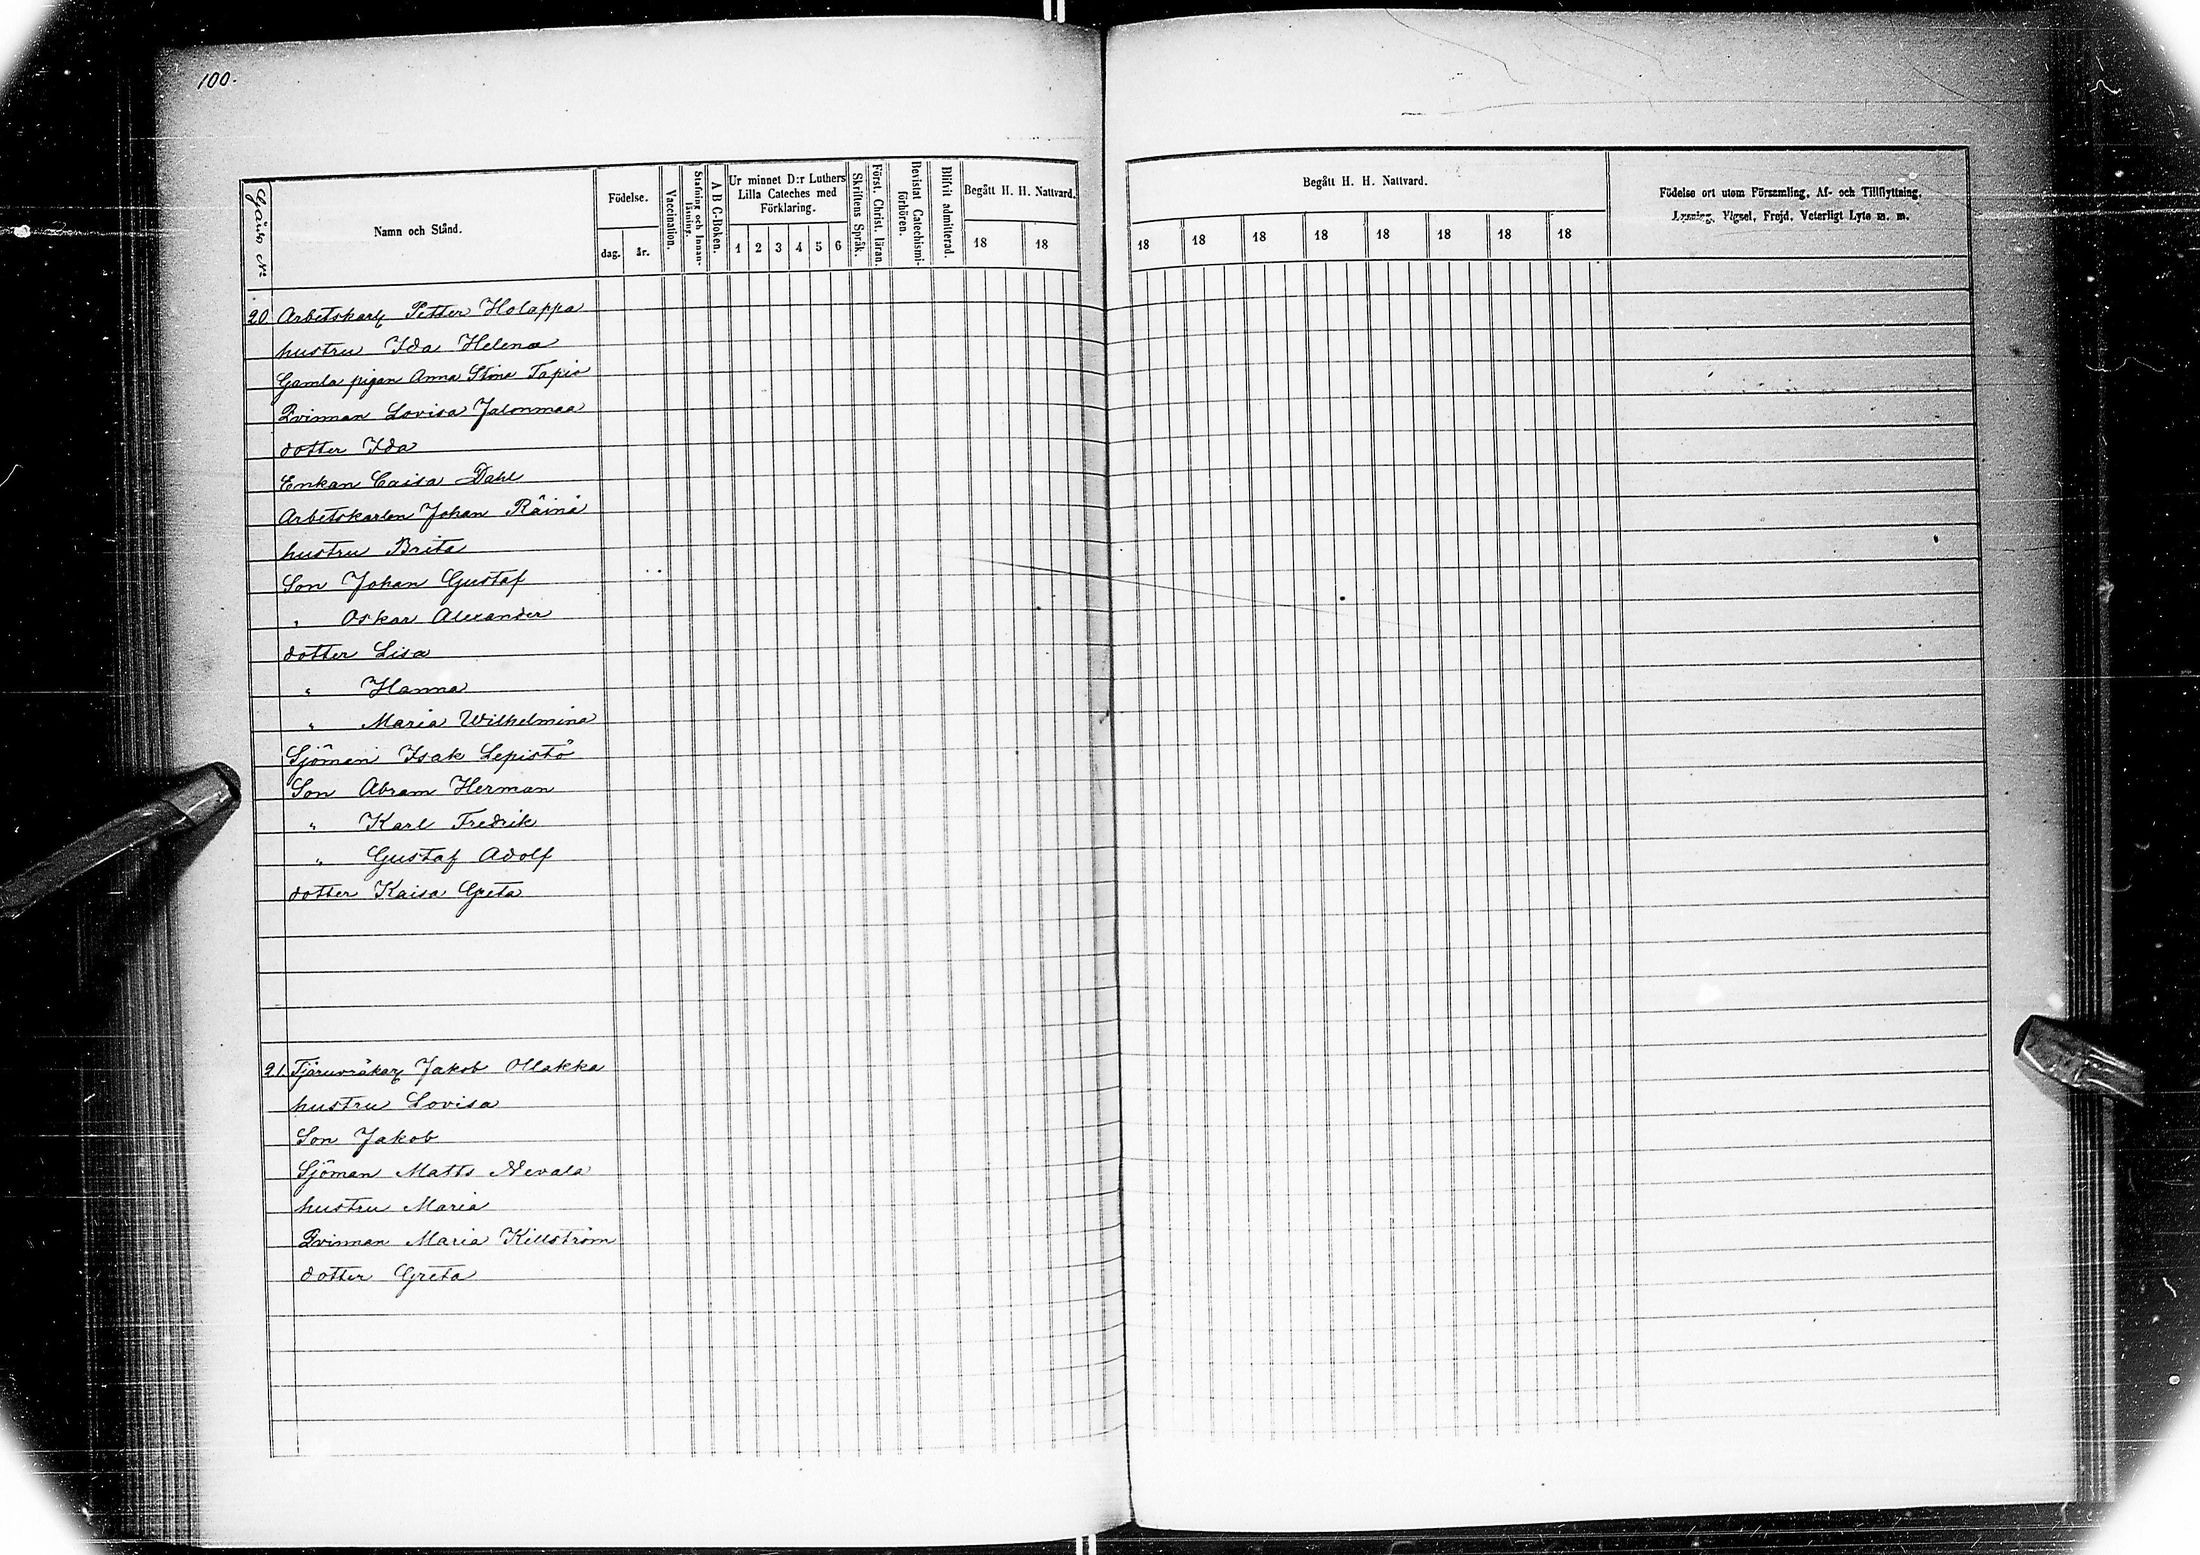 100.
Gårds No
Namn och Stånd.
Födelse.
dag.
år.
Vaccination.
Stafning och Innan-läsning.
A B C-boken.
Ur minnet D:r Luthers
Lilla Cateches med
Förklaring.
1 2 3 4 5 6
Skriftens Språk.
Först. Christ. läran.
Bevistat Catechismi-förhören.
Blifvit admitterad.
Begått H. H. Nattvard.
18 18
Begått H. H. Nattvard.
18 18 18 18 18 18 18 18
Födelse ort utom Församling, Af- och Tillflyttning,
Lysning, Vigsel, Frejd, Veterligt Lyte m. m.
20 Arbetskarl Petter Holappa
hustru Ida Helena
Gamla pigan Anna Stina Tapio
Qvinnan Lovisa Jalonmaa
dotter Ida
Enkan Caisa Dahl
Arbetskarlen Johan Räinä
hustru Brita
Son Johan Gustaf
" Oskar Alexander
dotter Lisa
" Hanna
" Maria Wilhelmina
Sjöman Isak Lepistö
Son Abram Herman
" Karl Fredrik
" Gustaf Adolf
dotter Kaisa Greta
21. Jakob Ollakka
hustru Lovisa
Son Jakob
Sjöman Matts Nevala
hustru Maria
Qvinnan Maria Killström
dotter Greta